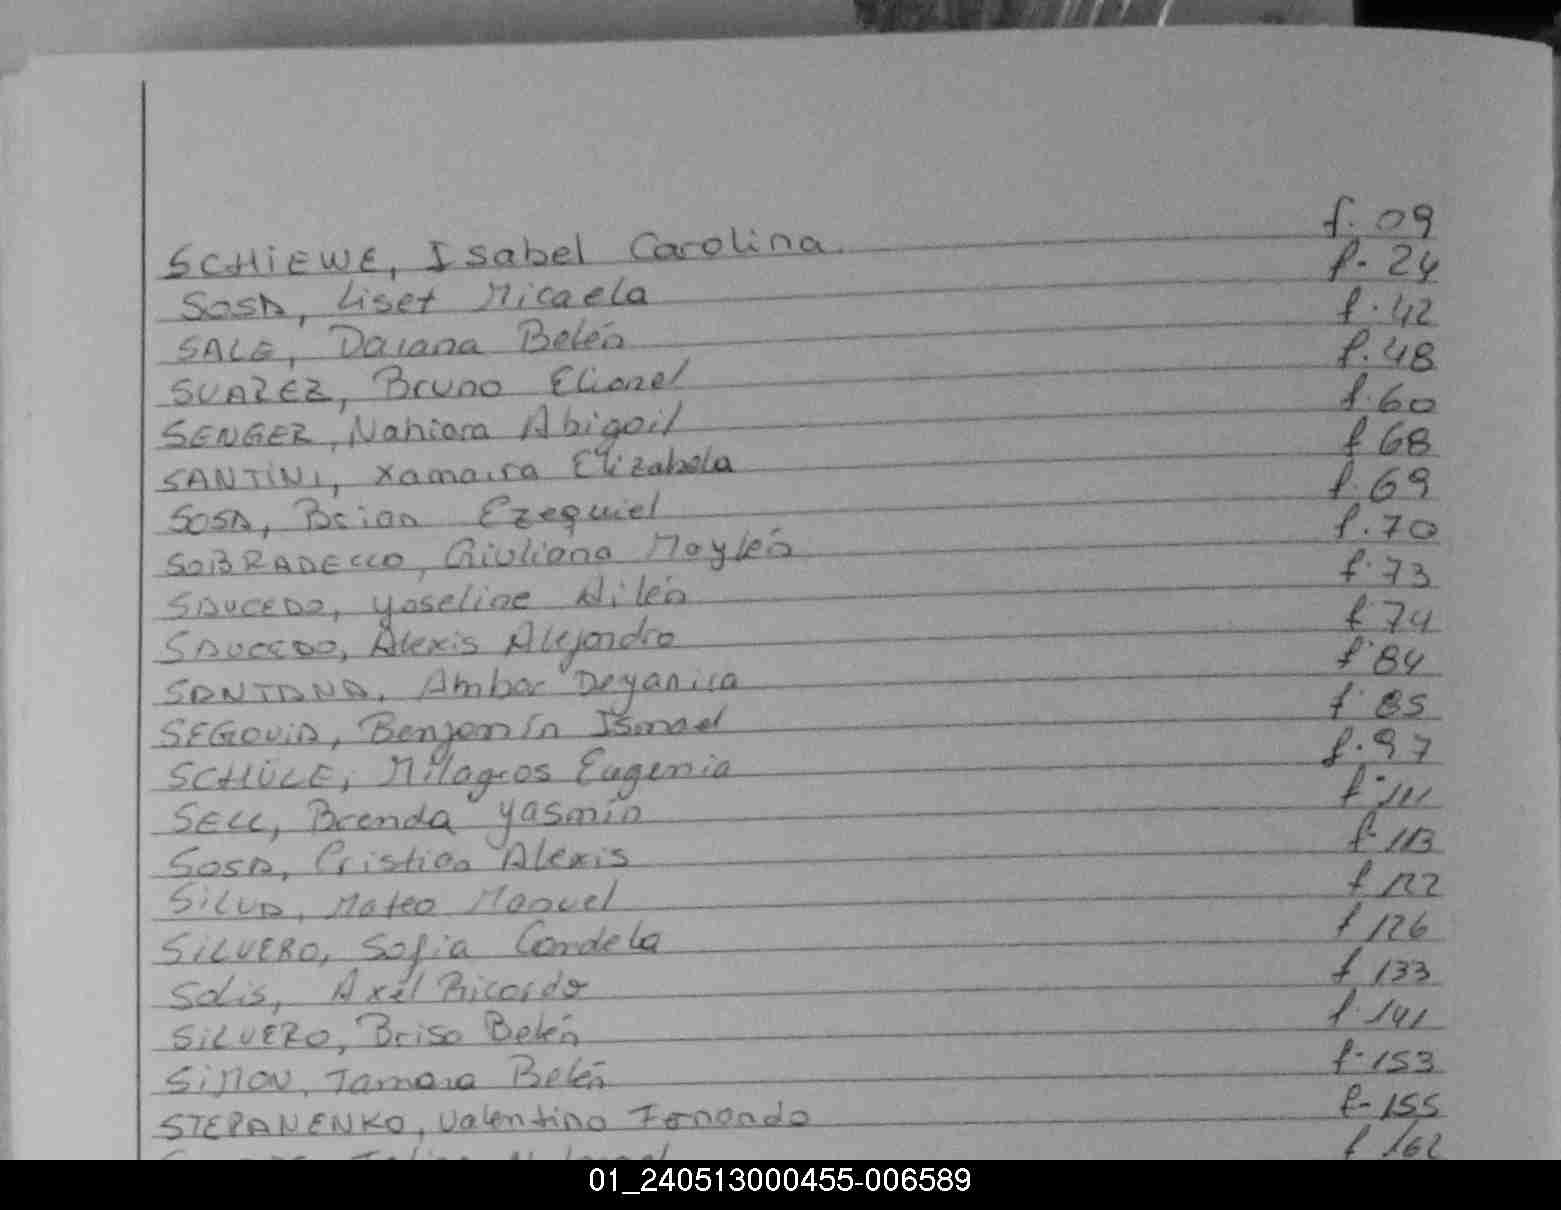 SCHIEWE, Isabel Carolina f. 09
SOSA, Liset Micaela f. 24
SALE, Daiana Belén f. 42
SUAREZ, Bruno Elionel f. 48
SENGER, Nahiara Abigail f. 60
SANTINI, Xamaira Elizabela f 68
SOSA, Brian Ezequiel f. 69
SOBRADELLO, Giuliana Maylén f. 70
SAUCEDO, Yoseline Ailén f. 73
SAUCEDO, Alexis Alejandro f. 74
SANTANA, Ambar Deyanira f. 84
SEGOVIA, Benjamín Ismael f. 85
SCHULE, Milagros Eugenia f. 97
SELL, Brenda Yasmín f. 111
SOSA, Cristian Alexis f. 113
SILVA, Mateo Manuel f 122
SILVERO, Sofia Candela f 126
Solis, Axel Ricardo f 133
SILVERO, Brisa Belén f. 141
SIMON, Tamara Belén f. 153
STEPANENKO, Valentina Fernanda f. 155
f 162
01_240513000455-006589